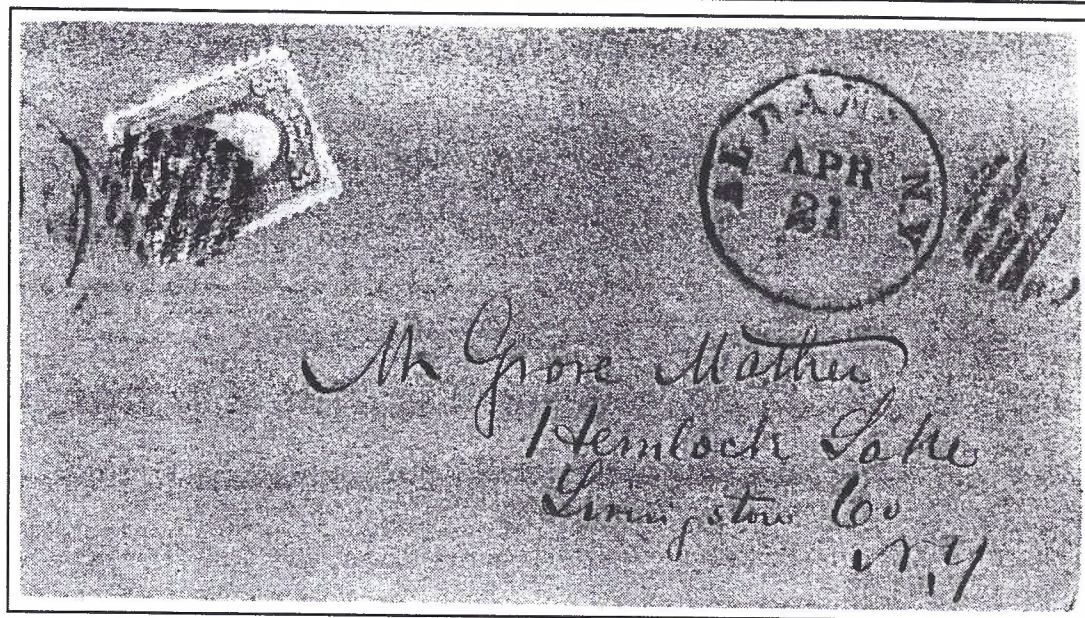 APR
21
N Y
Mr Grove Mather
Hemlock Lake
Livingston Co
N.Y